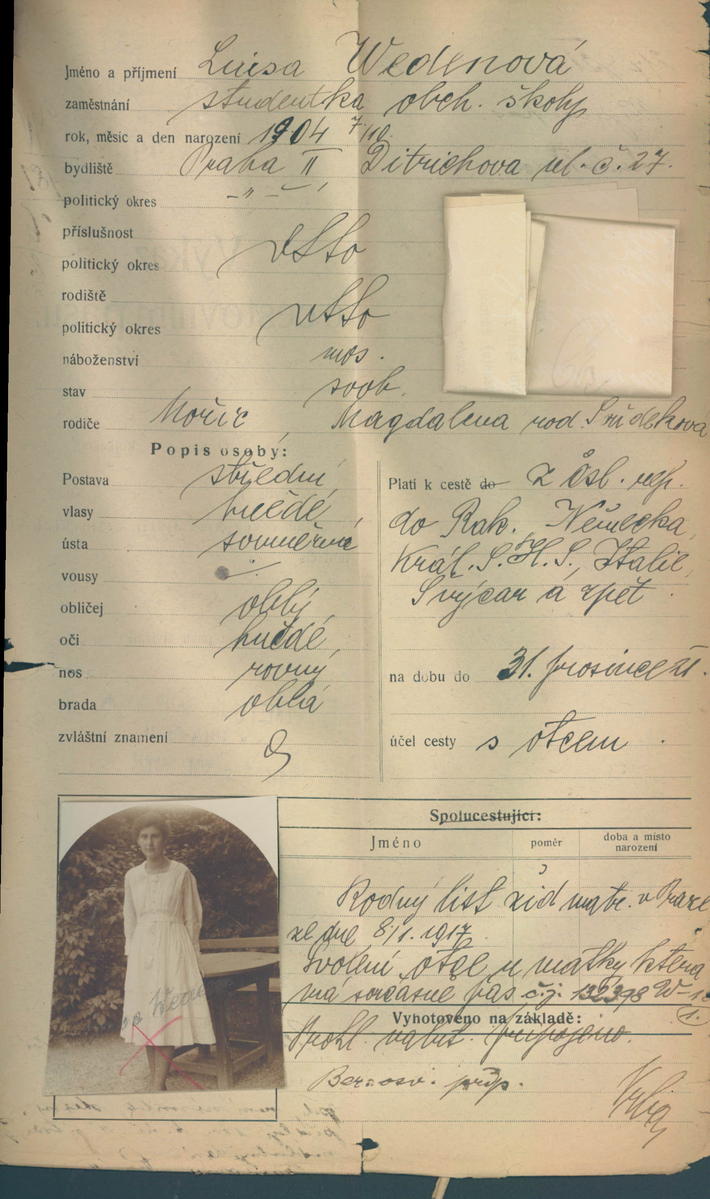 Jméno a příjmení Luisa Wedenová
zaměstnání studentka obch. školy
rok, měsíc a den narození 1904 7/10.
bydliště Praha II Ditrichova ul. č. 27.
politický okres -"-
příslušnost
politický okres dtto
rodiště
politický okres dtto
náboženství mos.
stav svob.
rodiče Mořic, Magdalena rod.
Popis osoby:
Postava střední,
vlasy hnědé,
ústa souměrné
vousy
obličej oblý,
oči hnědé,
nos rovný,
brada oblá
zvláštní znamení
Platí k cestě do z čsl. rep.
do Rak., Německa,
Král. S.H.S., Italie,
Švýcar a zpět.
na dobu do 31. prosince 21.
účel cesty s otcem.
Spolucestující:
Jméno poměr doba a místo narození
Rodný list žid. matr. v Praze
ze dne 8/1. 1917.
Svolení otce u matky, která
má současně pas č.j. 132398
Vyhotoveno na základě:
Prohl. připojeno.